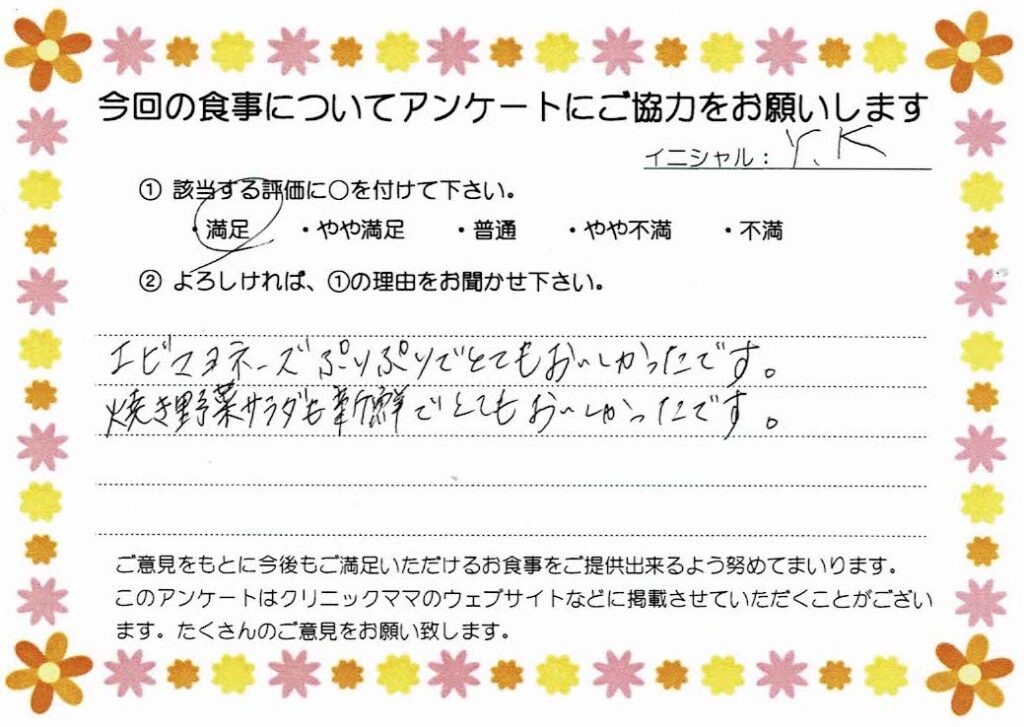 今回の食事についてアンケートにご協力をお願いします
イニシャル： Y.K
① 該当する評価に○を付けて下さい。
・満足 ・やや満足 ・普通 ・やや不満 ・不満
② よろしければ、①の理由をお聞かせ下さい。
エビマヨネーズぷりぷりでとてもおいしかったです。
焼き野菜サラダも新鮮でとてもおいしかったです。
ご意見をもとに今後もご満足いただけるお食事をご提供出来るよう努めてまいります。
このアンケートはクリニックママのウェブサイトなどに掲載させていただくことがござい
ます。たくさんのご意見をお願い致します。